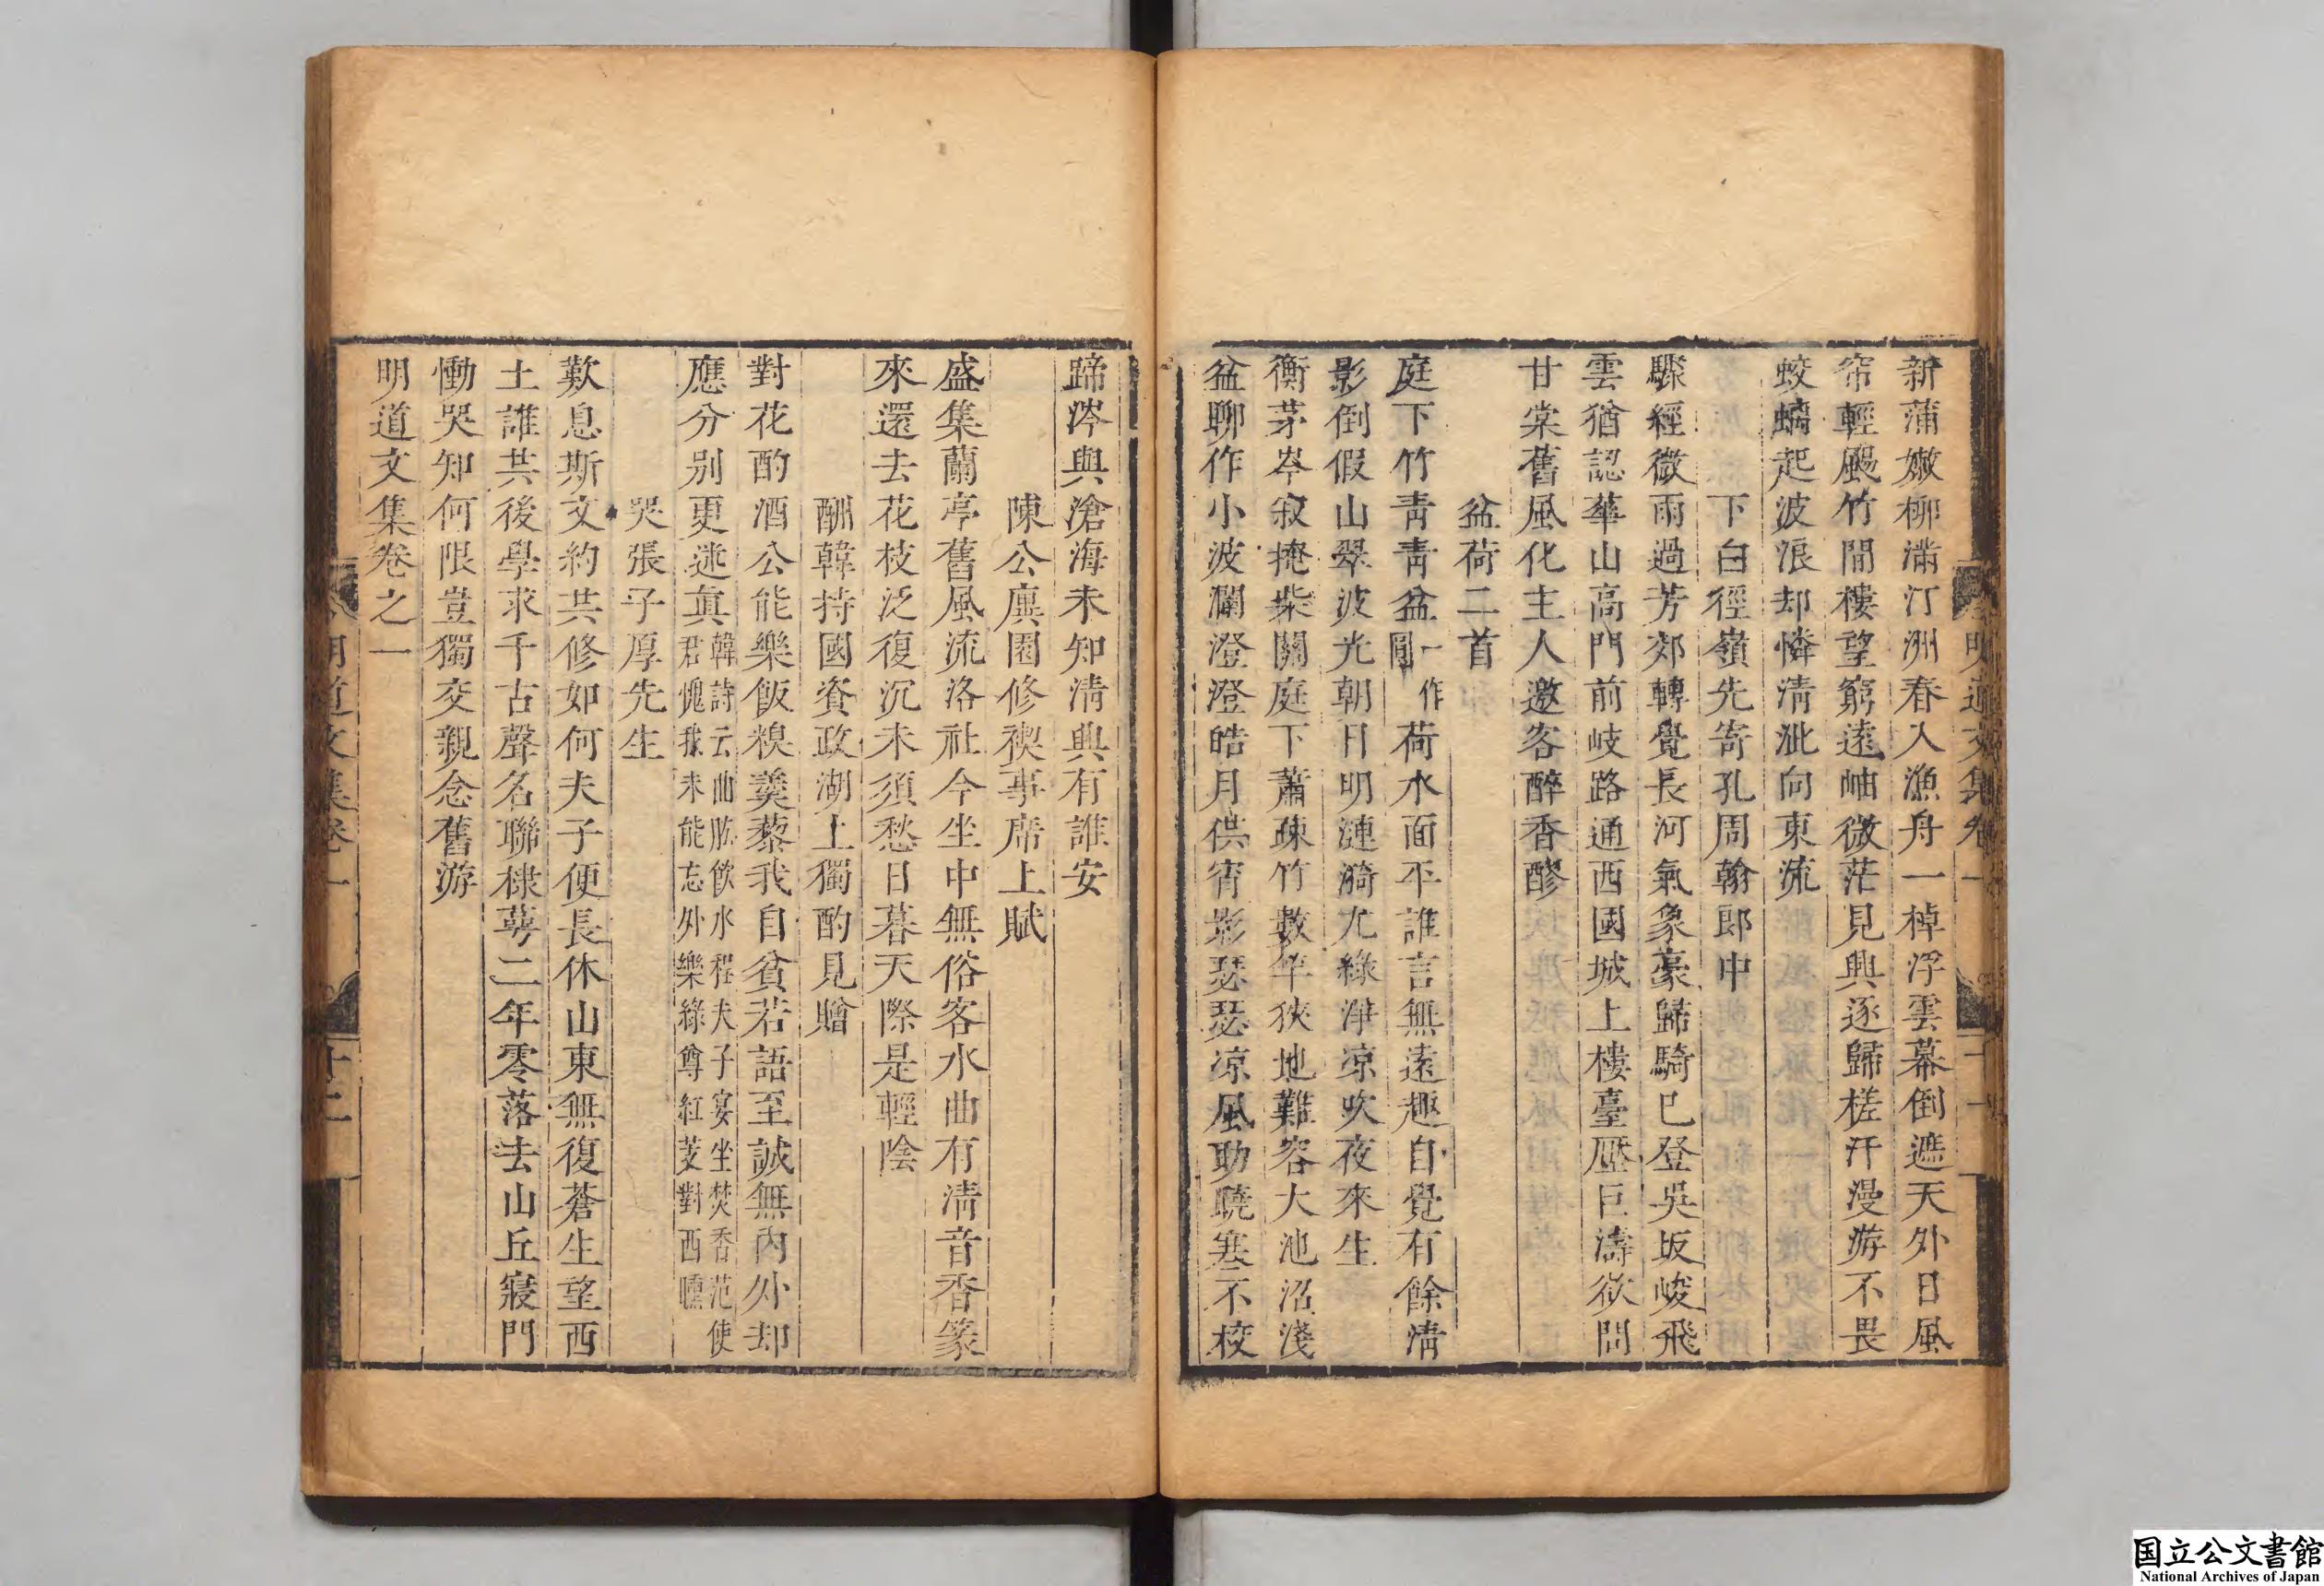 明道文集卷一
十一
新蒲嫩柳滿汀洲春入漁舟一棹浮雲幕倒遮天外日風
帘輕颺竹間樓望窮遠岫微茫見興逐歸槎汗漫游不畏
蛟螭起波浪却憐淸泚向東流
下白徑嶺先寄孔周翰郎中
驟經微雨過芳郊轉覺長河氣象豪歸騎已登吳坂峻飛
雲猶認華山高門前岐路通西國城上樓臺壓巨濤欲問
甘棠舊風化主人邀客醉香醪
盆荷二首
庭下竹靑靑盆一作圓荷水面平誰言無遠趣自覺有餘淸
影倒假山翠波光朝日明漣漪尤綠淨凉吹夜來生
衡茅岑寂掩柴關庭下蕭疎竹數竿狹地難容大池沼淺
盆聊作小波瀾澄澄皓月供宵影瑟瑟凉風助曉寒不校
蹄涔與滄海未知淸興有誰安
陳公廙園修禊事席上賦
盛集蘭亭舊風流洛社今坐中無俗客水曲有淸音香篆
來還去花枝泛復沉未須愁日暮天際是輕陰
酬韓持國資政湖上獨酌見贈
對花酌酒公能樂飯糗羹藜我自貧若語至誠無內外却
應分别更迷眞韓詩云曲肱飮水程夫子宴坐焚香范使君愧我未能忘外樂綠尊紅芰對西曛
哭張子厚先生
歎息斯文約共修如何夫子便長休山東無復蒼生望西
土誰共後學求千古聲名聯棣萼二年零落去山丘寢門
慟哭知何限豈獨交親念舊游
明道文集卷之一
明道文集卷一
十二
国立公文書館
National Archives of Japan